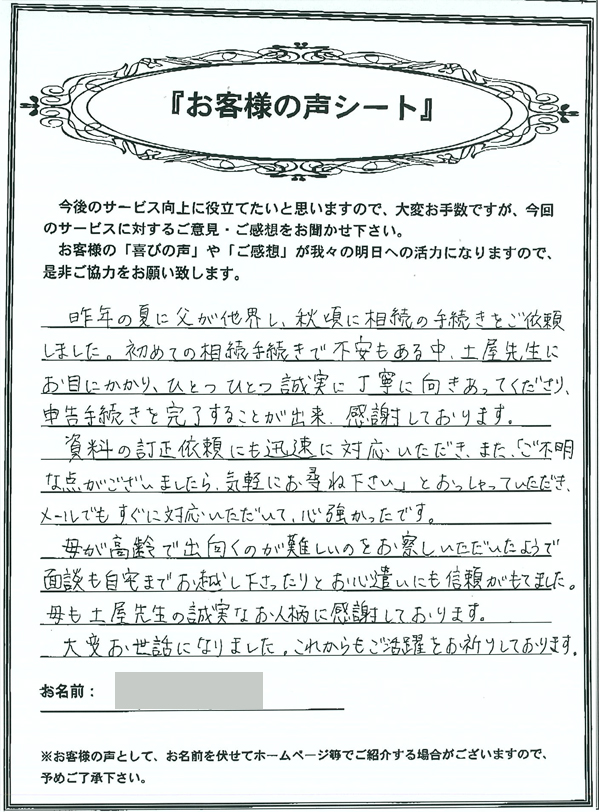 『お客様の声シート』
今後のサービス向上に役立てたいと思いますので、大変お手数ですが、今回
のサービスに対するご意見・ご感想をお聞かせ下さい。
お客様の「喜びの声」や「ご感想」が我々の明日への活力になりますので、
是非ご協力をお願い致します。
昨年の夏に父が他界し、秋頃に相続の手続きをご依頼
しました。初めての相続手続きで不安もある中、土屋先生に
お目にかかり、ひとつひとつ誠実に丁寧に向きあってくださり、
申告手続きを完了することが出来、感謝しております。
資料の訂正依頼にも迅速に対応いただき、また、「ご不明
な点がございましたら、気軽にお尋ね下さい」とおっしゃっていただき、
メールでもすぐに対応いただいて、心強かったです。
母が高齢で出向くのが難しいのをお察しいただいたようで
面談も自宅までお越し下さったりとお心遣いにも信頼がもてました。
母も土屋先生の誠実なお人柄に感謝しております。
大変お世話になりました。これからもご活躍をお祈りしております。
お名前：
※お客様の声として、お名前を伏せてホームページ等でご紹介する場合がございますので、
予めご了承下さい。